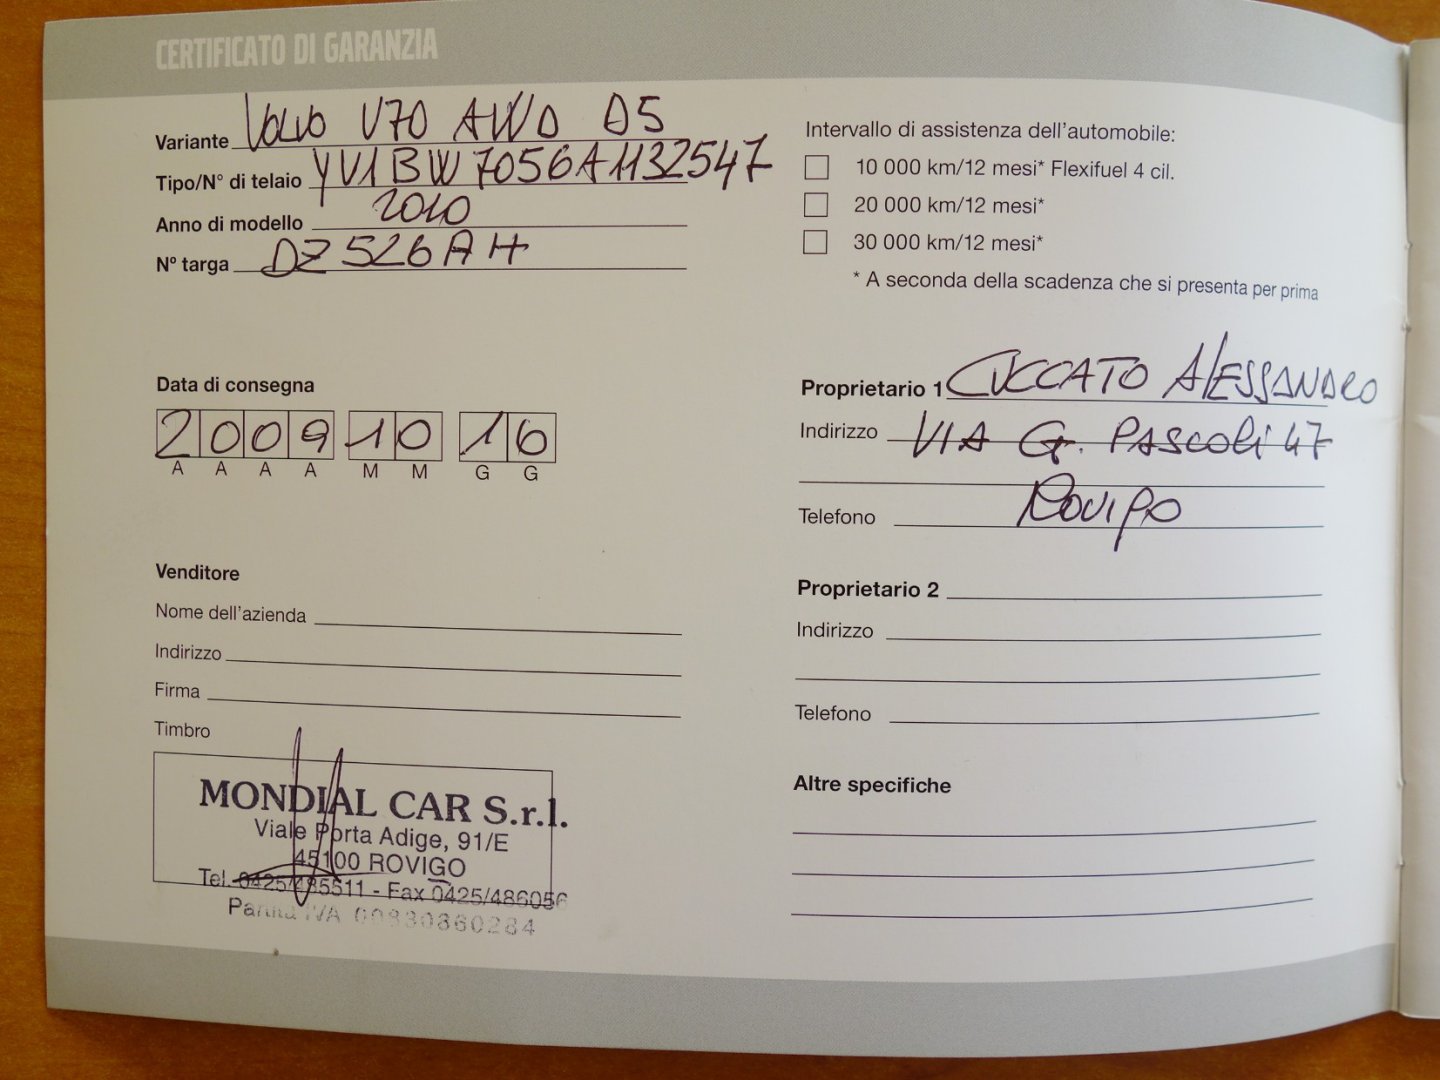 CERTIFICATO DI GARANZIA
Variante Volvo V70 AWD D5
Tipo/N° di telaio YV1BW7056A1132547
Anno di modello 2010
N° targa DZ526AH
Data di consegna
2009 10 16
A A A A M M G G
Venditore
Nome dell'azienda
Indirizzo
Firma
Timbro
MONDIAL CAR S.r.l.
Viale Porta Adige, 91/E
45100 ROVIGO
Tel. 0425/485511 - Fax 0425/486056
Partita IVA 00830860284
Intervallo di assistenza dell'automobile:
10 000 km/12 mesi* Flexifuel 4 cil.
20 000 km/12 mesi*
30 000 km/12 mesi*
* A seconda della scadenza che si presenta per prima
Proprietario 1 CUCCATO ALESSANDRO
Indirizzo VIA G. PASCOLI 47
ROVIGO
Telefono
Proprietario 2
Indirizzo
Telefono
Altre specifiche